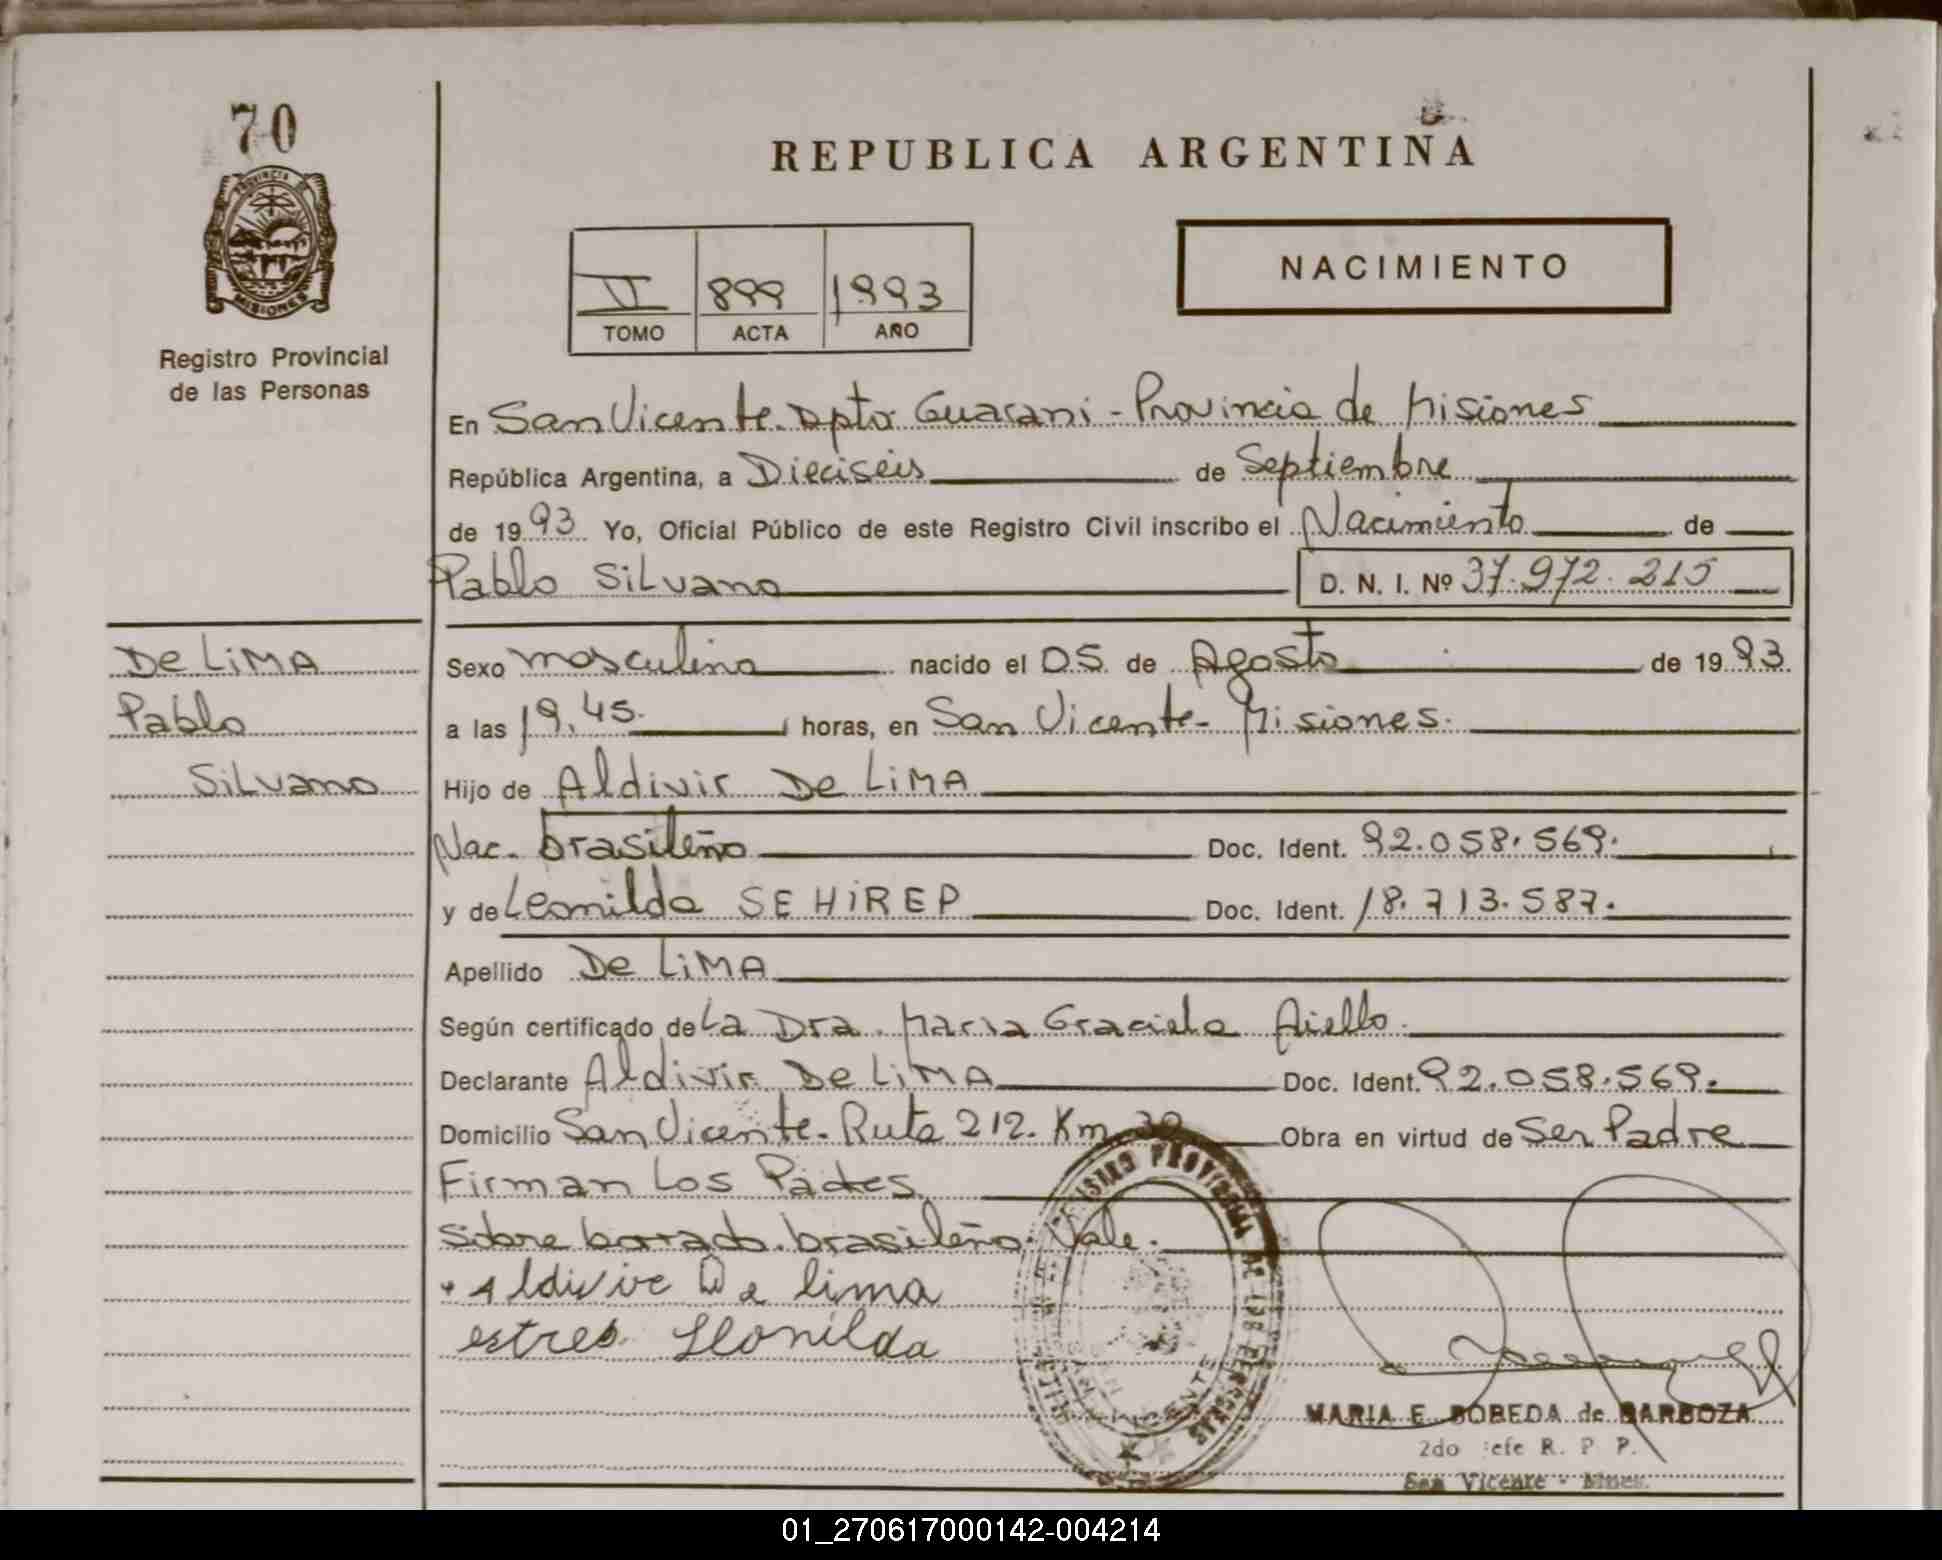 70
REPUBLICA ARGENTINA
PROVINCIA DE
MISIONES
Registro Provincial
de las Personas
NACIMIENTO
II 899 1993
TOMO ACTA AÑO
En San Vicente. Dpto Guarani - Provincia de Misiones
República Argentina, a Dieciseis de Septiembre
de 19 93 Yo, Oficial Público de este Registro Civil inscribo el Nacimiento de
Pablo Silvano D. N. I. Nº 37.972.215
De LiMA
Pablo
Silvano
Sexo masculino nacido el 05 de Agosto de 19 93
a las 19,45. horas, en San Vicente - Misiones.
Hijo de Aldivir De LiMA
Nac. brasileño Doc. Ident. 92.058.569.
y de Leonilda SEHIREP Doc. Ident. 18.713.587.
Apellido De LiMA
Según certificado de La Dra. Maria Graciela Aiello.
Declarante Aldivir De LiMA Doc. Ident. 92.058.569.
Domicilio San Vicente. Ruta 212. Km 30 Obra en virtud de Ser Padre
Firman Los Padres
Sobre borrado. brasileño. Vale.
Aldivire De lima
estres Leonilda
MARIA E. BOBEDA de BARBOZA
2do Jefe R. P. P.
San Vicente - Mnes.
01_270617000142-004214